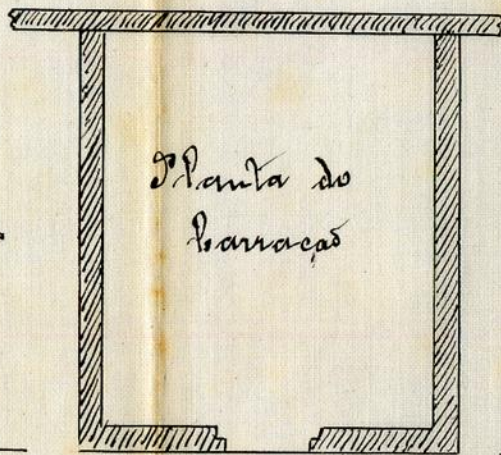 Planta do
barracão